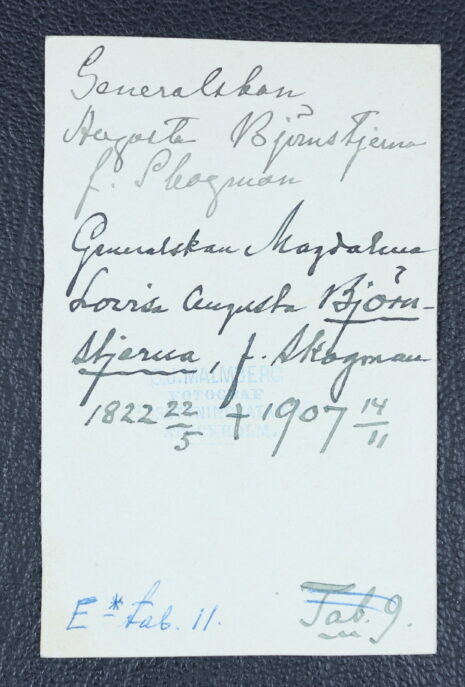 Generalskan
Augusta Björnstjerna
f. Skogman
Generalskan Magdalena
Lovisa Augusta Björn-
stjerna, f. Skogman
C.J. MALMBERG
FOTOGRAF
STOCKHOLM.
1822 22/5 † 1907 14/11
E* tab. 11.
Tab. 9.